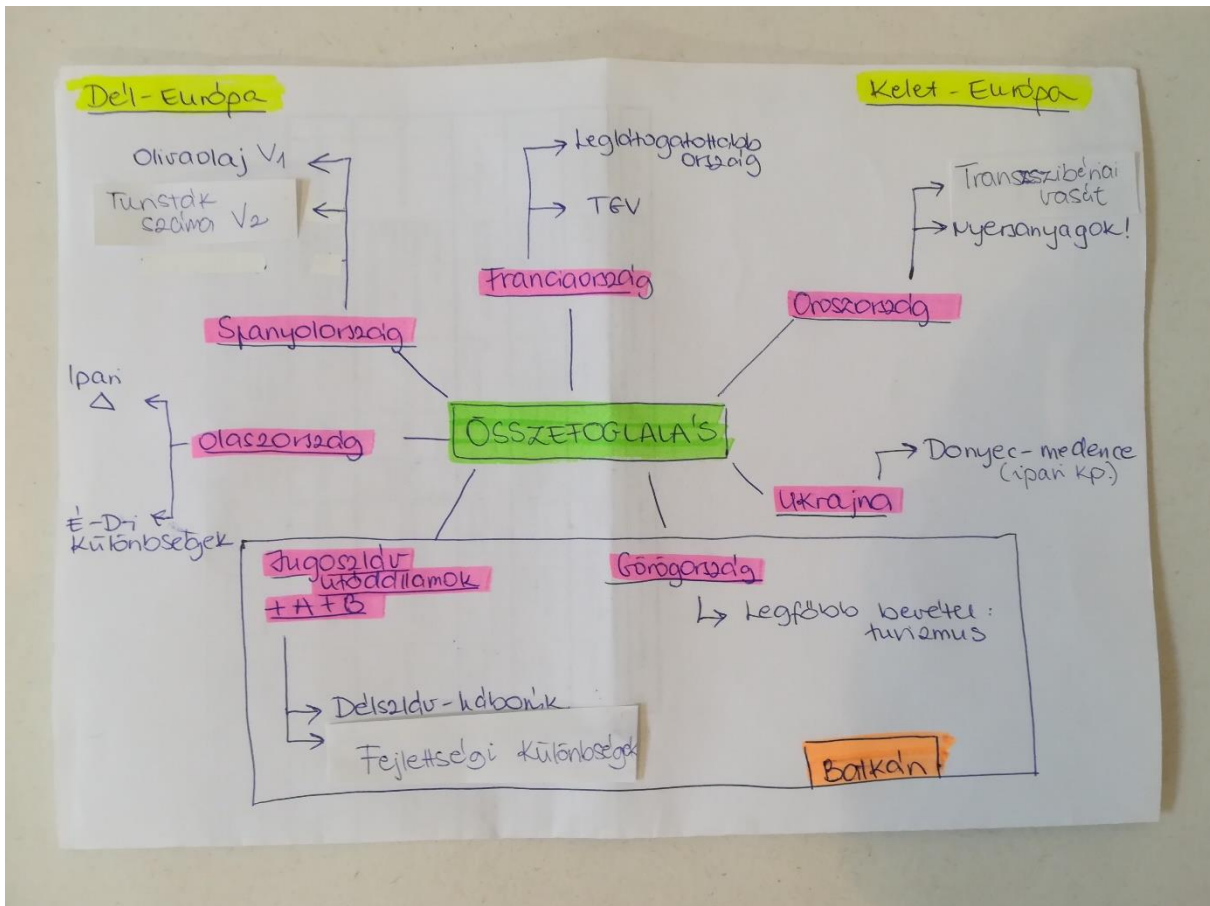 Dél-Európa
Kelet-Európa
Olivaolaj V1
Turisták
száma V2
Leglátogatottabb
ország
TGV
Transzszibériai
vasút
Nyersanyagok!
Franciaország
Oroszország
Spanyolország
Ipari
△
Olaszország
ÖSSZEFOGLALÁS
É-D-i
különbségek
Donyec-medence
(ipari kp.)
Ukrajna
Jugoszláv
utódállamok
+A+B
Görögország
Legfőbb bevétel:
turizmus
Délszláv-háborúk
Fejlettségi különbségek
Balkán